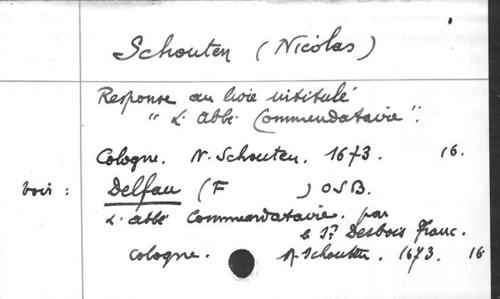 Schouten (Nicolas)
Response au livre intitulé
"L'Abbé Commendataire".
Cologne. N. Schouten. 1673. 16.
voir : Delfau (F ) OSB.
L'abbé Commendataire. par
le Sr Desbois Franc.
Cologne. N. Schouten. 1673. 16